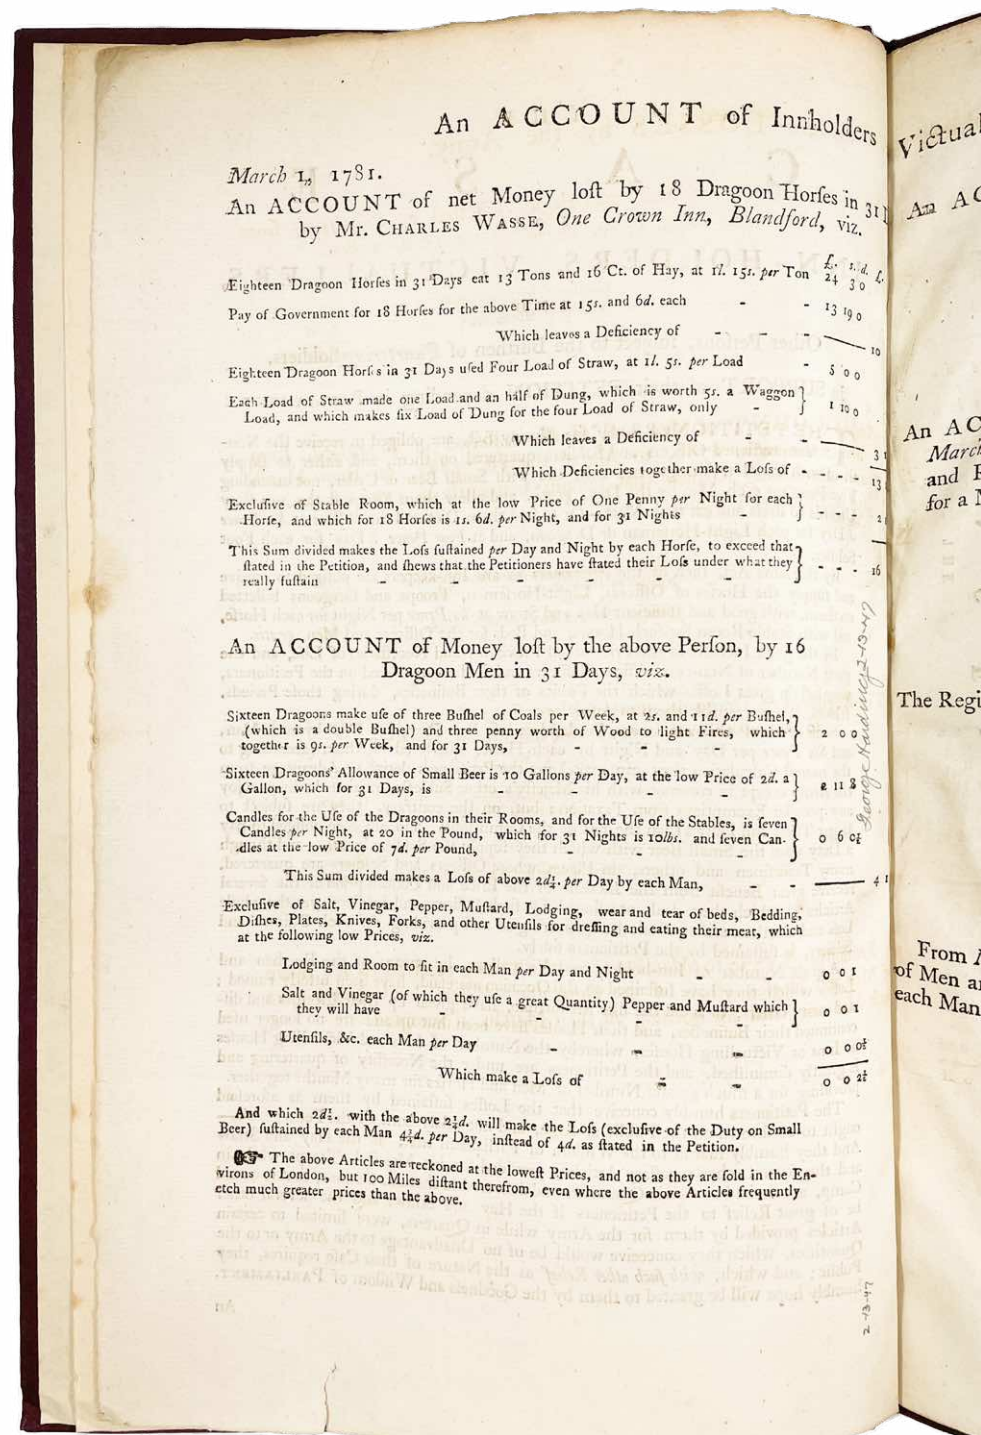 An ACCOUNT of Innholders
March 1, 1781.
An ACCOUNT of net Money loſt by 18 Dragoon Horſes in 31
by Mr. CHARLES WASSE, One Crown Inn, Blandford, viz.
£. s. d. £.
Eighteen Dragoon Horſes in 31 Days eat 13 Tons and 16 Ct. of Hay, at 1l. 15s. per Ton 24 3 0
Pay of Government for 18 Horſes for the above Time at 15s. and 6d. each - - 13 19 0
Which leaves a Deficiency of - - - 10
Eighteen Dragoon Horſes in 31 Days uſed Four Load of Straw, at 1l. 5s. per Load - 5 0 0
Each Load of Straw made one Load and an half of Dung, which is worth 5s. a Waggon
Load, and which makes ſix Load of Dung for the four Load of Straw, only - 1 10 0
Which leaves a Deficiency of - - 3
Which Deficiencies together make a Loſs of - - - 13
Excluſive of Stable Room, which at the low Price of One Penny per Night for each
Horſe, and which for 18 Horſes is 1s. 6d. per Night, and for 31 Nights - - - - 2
This Sum divided makes the Loſs ſuſtained per Day and Night by each Horſe, to exceed that
ſtated in the Petition, and ſhews that the Petitioners have ſtated their Loſs under what they - - - 16
really ſuſtain - - - - - -
An ACCOUNT of Money loſt by the above Perſon, by 16
Dragoon Men in 31 Days, viz.
Sixteen Dragoons make uſe of three Buſhel of Coals per Week, at 2s. and 11d. per Buſhel,
(which is a double Buſhel) and three penny worth of Wood to light Fires, which 2 0 0
together is 9s. per Week, and for 31 Days, - - -
Sixteen Dragoons' Allowance of Small Beer is 10 Gallons per Day, at the low Price of 2d. a
Gallon, which for 31 Days, is - - - - 2 11 8
Candles for the Uſe of the Dragoons in their Rooms, and for the Uſe of the Stables, is ſeven
Candles per Night, at 20 in the Pound, which for 31 Nights is 10lbs. and ſeven Can- 0 6 0½
dles at the low Price of 7d. per Pound, - - -
This Sum divided makes a Loſs of above 2d¼. per Day by each Man, - - 4
Excluſive of Salt, Vinegar, Pepper, Muſtard, Lodging, wear and tear of beds, Bedding,
Diſhes, Plates, Knives, Forks, and other Utenſils for dreſſing and eating their meat, which
at the following low Prices, viz.
Lodging and Room to ſit in each Man per Day and Night - - 0 0 1
Salt and Vinegar (of which they uſe a great Quantity) Pepper and Muſtard which
they will have - - - - 0 0 1
Utenſils, &c. each Man per Day - - - 0 0 0½
Which make a Loſs of - - 0 0 2½
And which 2d½. with the above 2¼d. will make the Loſs (excluſive of the Duty on Small
Beer) ſuſtained by each Man 4¾d. per Day, inſtead of 4d. as ſtated in the Petition.
☞ The above Articles are reckoned at the loweſt Prices, and not as they are ſold in the En-
virons of London, but 100 Miles diſtant therefrom, even where the above Articles frequently
etch much greater prices than the above.
George Harding 2-13-47
2-13-47
Victual
An AC
An AC
March
and
for a
The Regi
From
of Men a
each Man